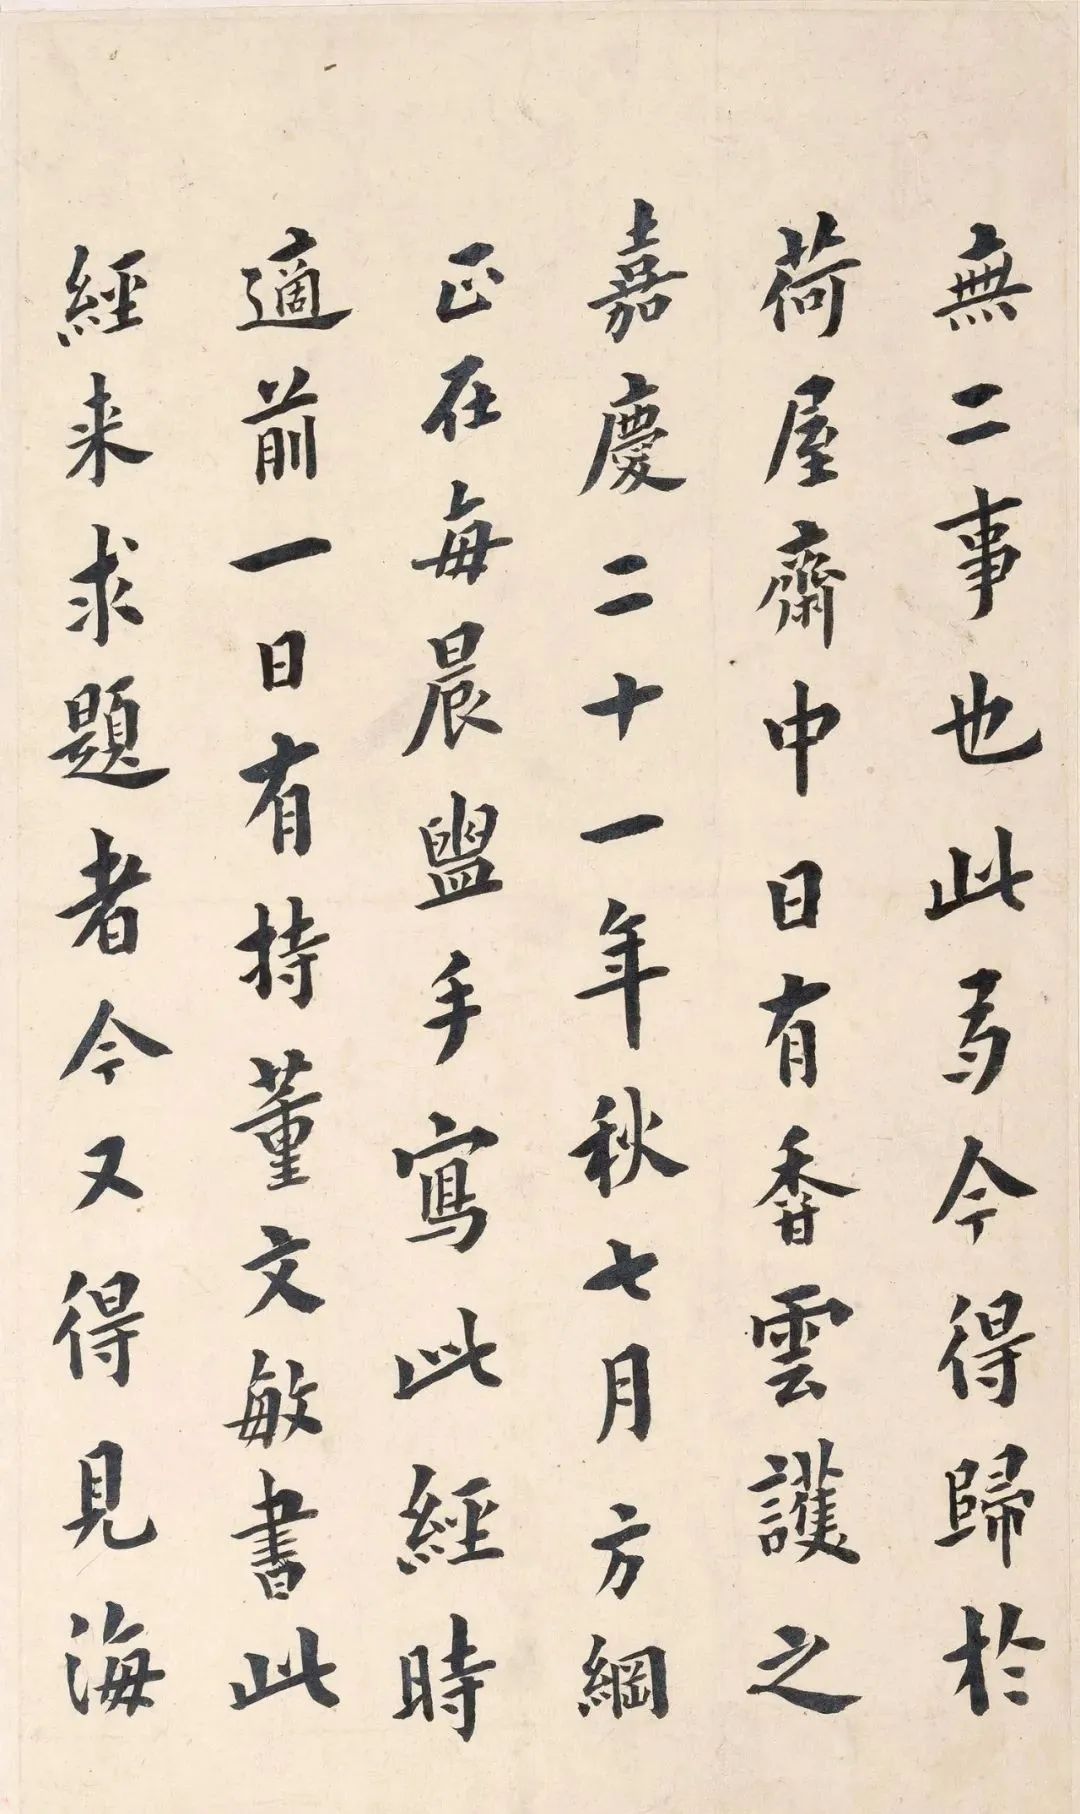 無二事也此馬今得歸於
荷屋齋中日有香雲護之
嘉慶二十一年秋七月方綱
正在每晨盥手寫此經時
適前一日有持董文敏書此
經来求題者今又得見海